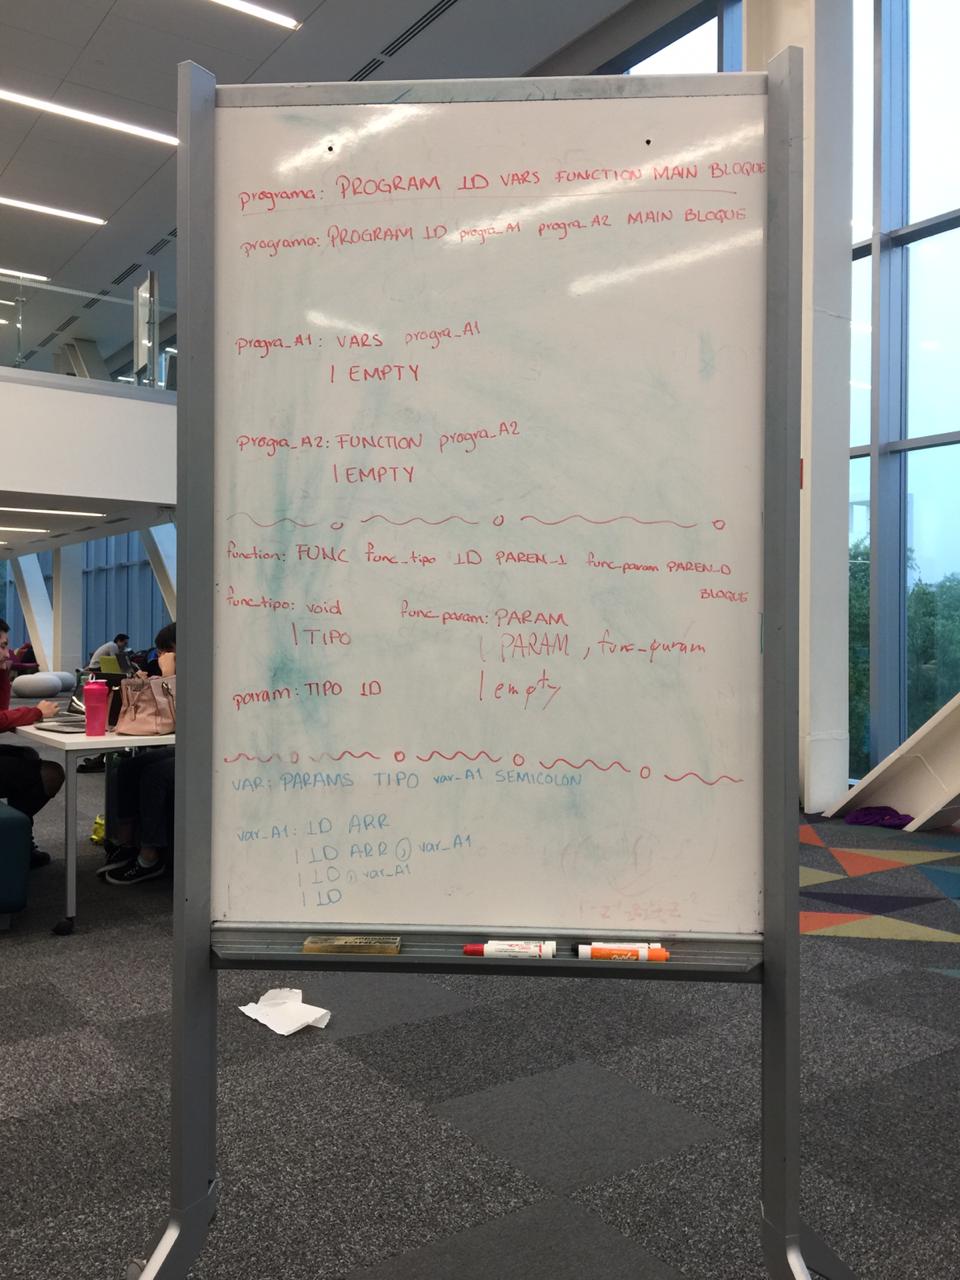 programa: PROGRAM ID VARS FUNCTION MAIN BLOQUE
programa: PROGRAM ID progra_A1 progra_A2 MAIN BLOQUE
progra_A1: VARS progra_A1
| EMPTY
progra_A2: FUNCTION progra_A2
| EMPTY
function: FUNC func_tipo ID PAREN_I func_param PAREN_D
BLOQUE
func_tipo: void
| TIPO
func_param: PARAM
| PARAM , func_param
| empty
param: TIPO ID
VAR: PARAMS TIPO var_A1 SEMICOLON
var_A1: ID ARR
| ID ARR , var_A1
| ID , var_A1
| ID